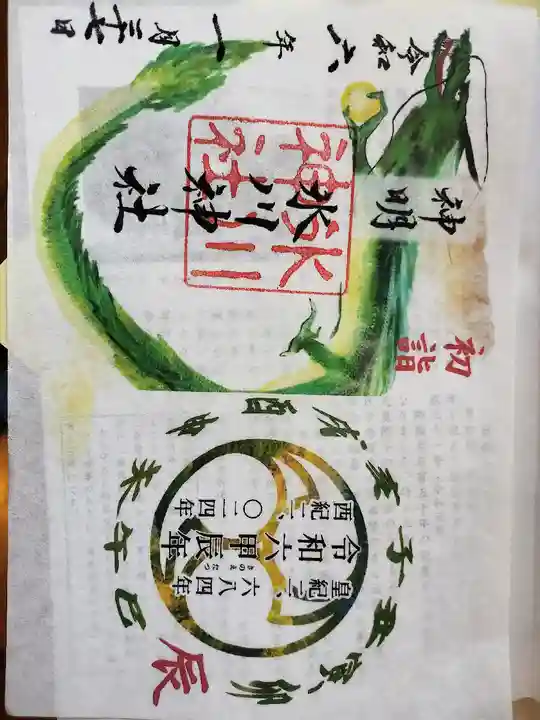 初詣
神明
氷川神社
氷川神社
令和六年
一月二十七日
皇紀二、六八四年
令和六甲辰年
きのえたつ
西紀二、〇二四年
子丑寅卯辰巳午未申酉戌亥